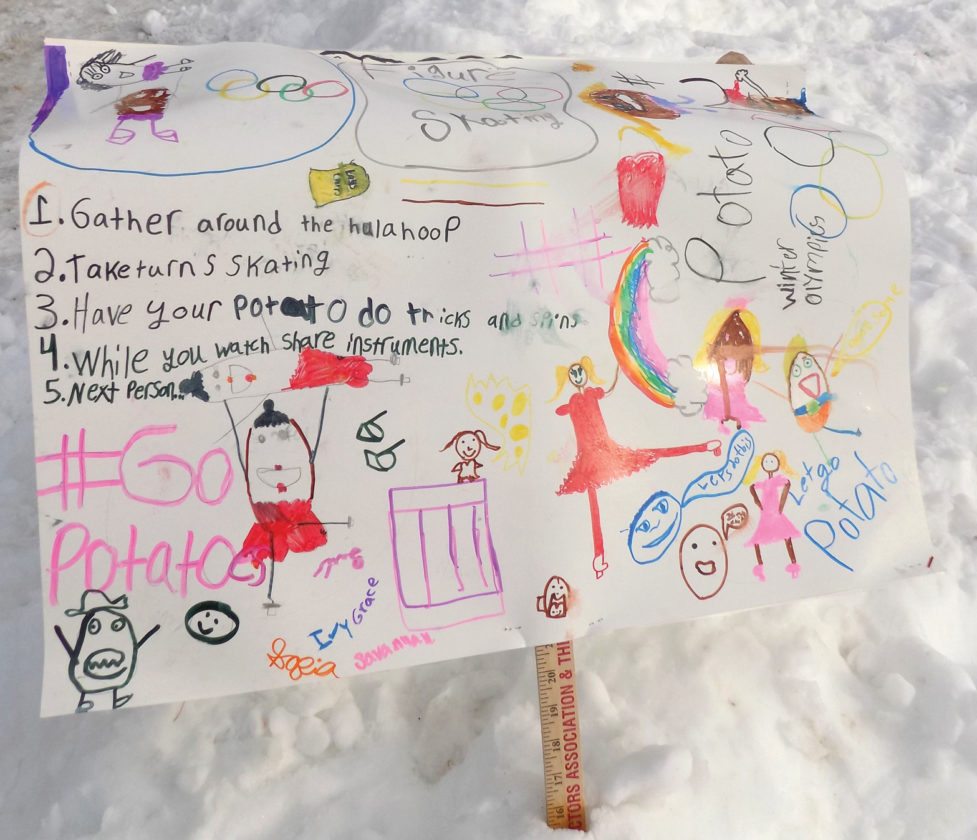 Figure
Skating
#
Potato
winter
olympics
1. Gather around the hulahoop
2. Take turns skating
3. Have your potato do tricks and spins
4. While you watch share instruments.
5. Next Person...
#Go
Potatoes
Let's do this
Let go
Potato
Ivy Grace
Savannah
20
19
18
17
16
CTORS ASSOCIATION & THI